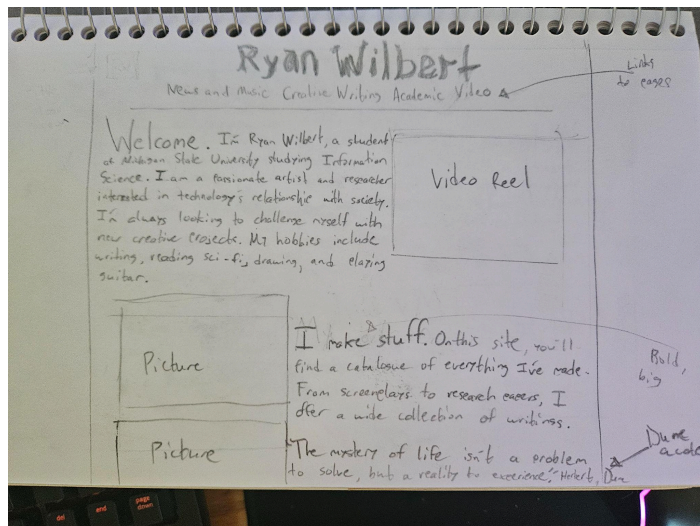 Ryan Wilbert
News and Music Creative Writing Academic Video
Links
to pages
Welcome. I'm Ryan Wilbert, a student
at Michigan State University studying Information
Science. I am a passionate artist and researcher
interested in technology's relationship with society.
I'm always looking to challenge myself with
new creative projects. My hobbies include
writing, reading sci-fi, drawing, and playing
guitar.
Video Reel
Picture
I make stuff. On this site, you'll
find a catalogue of everything I've made.
From screenplays to research papers, I
offer a wide collection of writings.
Bold,
big
Picture
"The mystery of life isn't a problem
to solve, but a reality to experience." Herbert, Dune
Dune
del
end
page
down